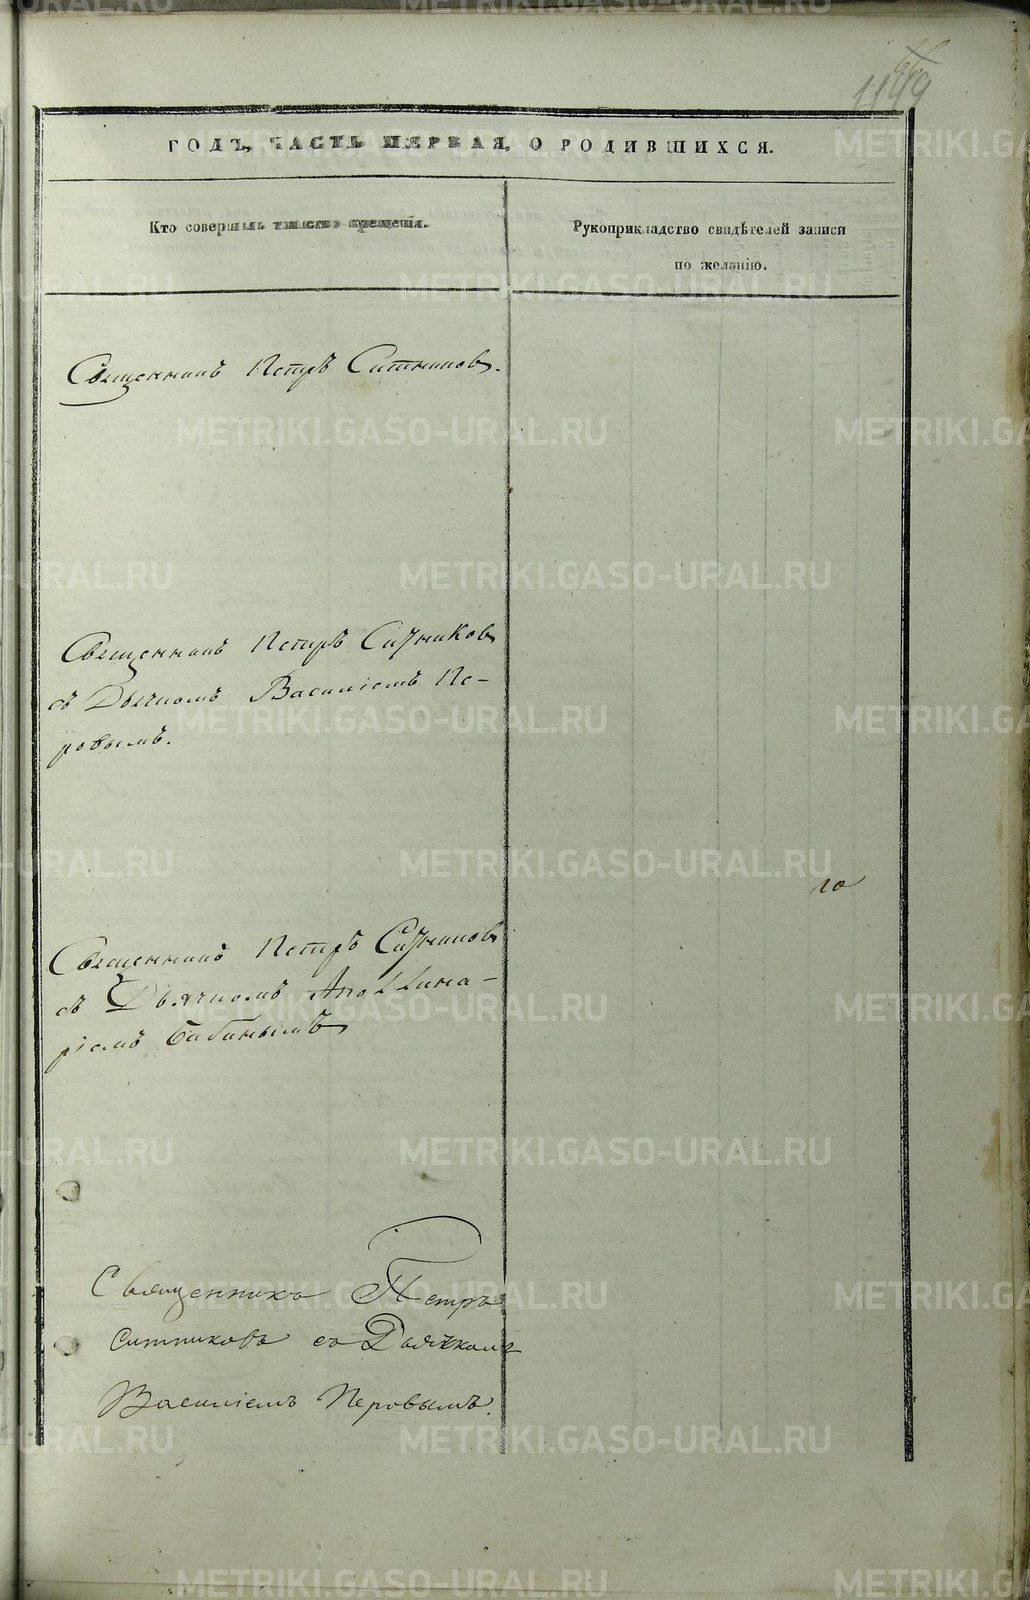 1149
ГОДЪ, ЧАСТЬ ПЕРВАЯ, О РОДИВШИХСЯ.
Кто совершалъ таинство крещенія.
Рукоприкладство свидѣтелей записи
по желанію.
Священникъ Петръ Ситниковъ.
Священникъ Петръ Ситниковъ
съ Дьячкомъ Василіемъ Пе-
ровымъ.
го
Священникъ Петръ Ситниковъ
съ Дьячкомъ Аполлина-
ріемъ Бабинымъ
Священникъ Петръ
Ситниковъ съ Дьячкомъ
Василіемъ Перовымъ.
METRIKI.GASO-URAL.RU